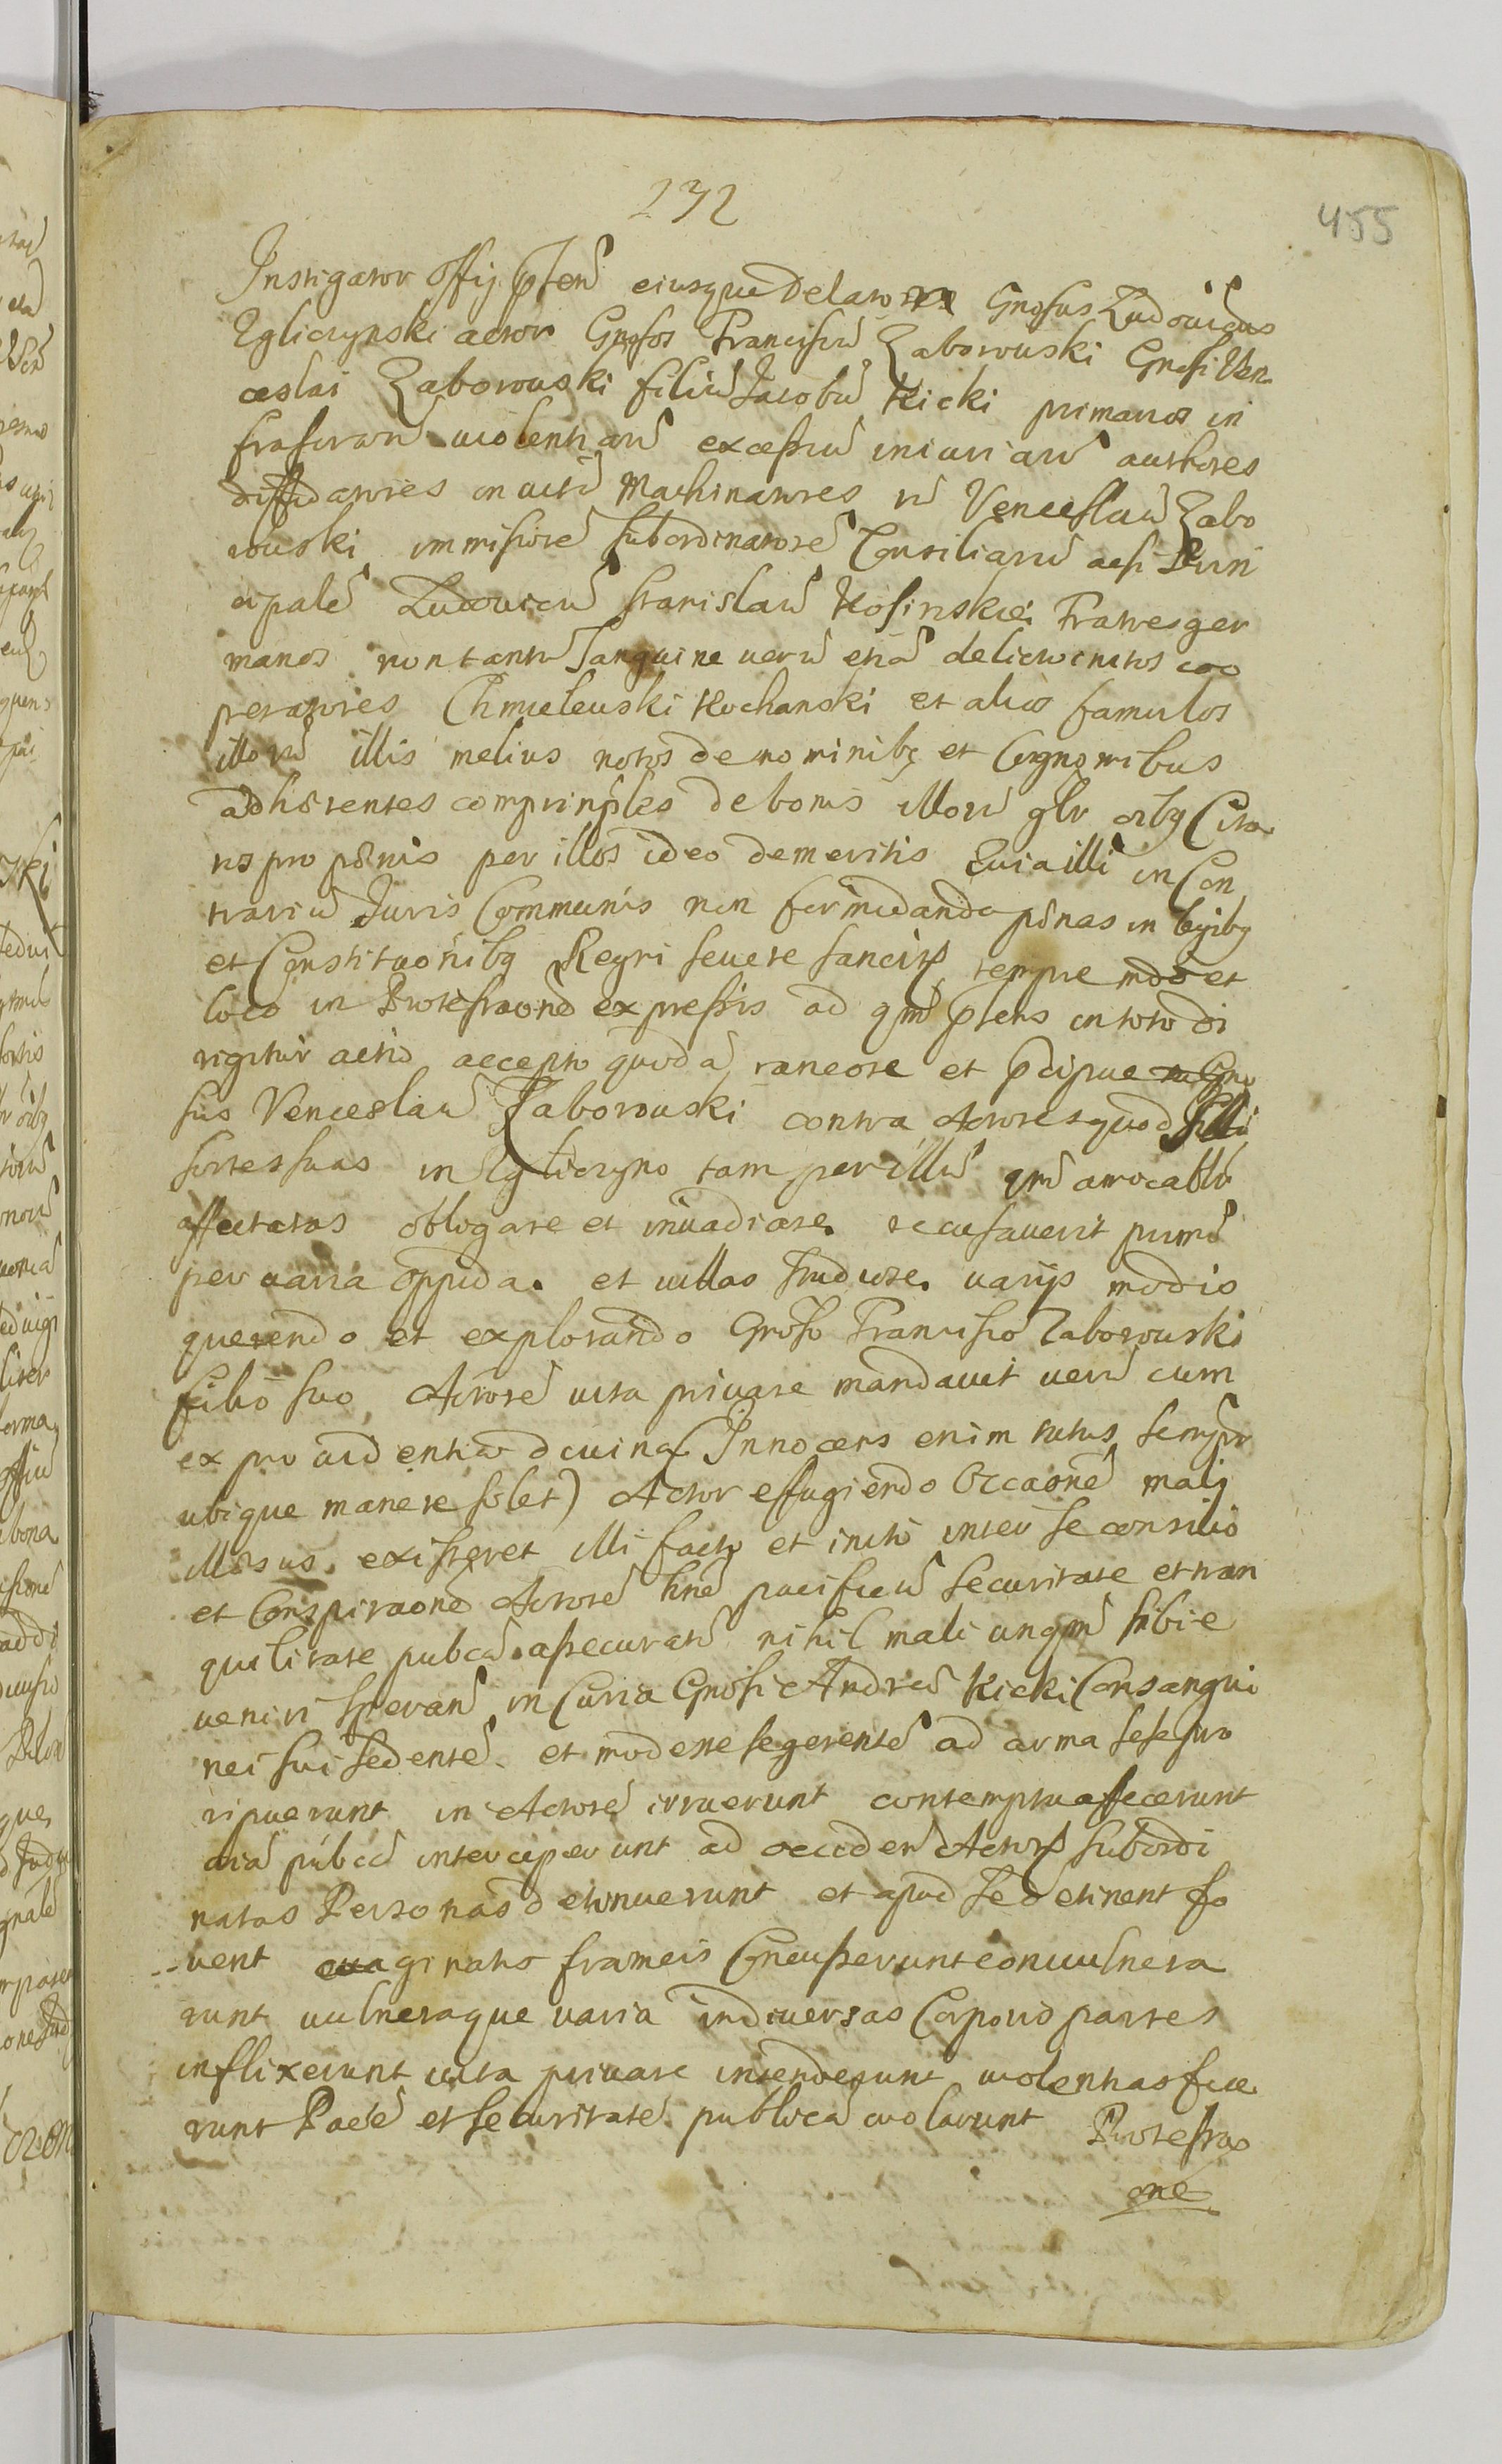 232
455
Instigator Offij Pten eiusque Delator Gnosus Ludovicus
Zgliczynski actor Gnosos Franciscu Zaborowski Gnosi Ven
ceslai Zaborowski filiu Jacobu Kicki primarios in
frascrarum violentiaru excessuu iniuriaru authores
diffidatores in vita Machinatores ac Venceslau Zabo
rowski immissore subordinatore Consiliariu acsi Prin
cipale Ludovicu Stanislau Kosinskie Fratres ger
manos non tantu Sanguine veru etia delicto iunctos coo
peratores Chmielewski Kochanski et alios famulos
illoru illis melius notos de nominibq et Cognomibus
adhærentes comprinples de bonis illoru glr oibq Cita
tos pro pœnis per illos ideo demeritis Quia illi in Con
trariu Juris Communis non formidando pœnas in legibq
et Constitutionibq Regni severe sancitas tempre modo et
loco in Protestaone expressis ad qm Ptens in toto di
rigitur actio accepto quoda rancore et Pcipue Gno
sus Venceslau Zaborowski contra Actores quod illi
sortes suas in Zgliczyno tam per illu qm
affectatas obligare et invadiare recusaverit primu
per varia oppida et villas studiose varijs modis
querendo et explorando Gnoso Francisco Zaborowski
filio suo Actore vita privare mandavit veru cum
ex providentia divina (Innocens enim tutus semper
ubique manere solet) Actor effugiendo Occaone mali
illæsus existeret illi facto et inito inter se consilio
et Conspiraone Actore bne pacificu securitate et tran
quilitate pubca assecuratu nihil mali unqm sibi e
veniri speran in Curia Gnosi Andreæ Kicki Consangui
nei sui sedente et modeste se gerente ad arma sese pro
ripuerunt in Actore irruerunt contemptu affecerunt
via pubca interceperunt ad occiden Actore subordi
natas Personas detinuerunt et apud se detinent fo
vent evaginatis frameis Concusserunt convulnera
runt vulneraque varia in diversas Corporis partes
inflixerunt vita privare intenderunt violentias fece
runt Pace et securitate publica violarunt Protestao
one